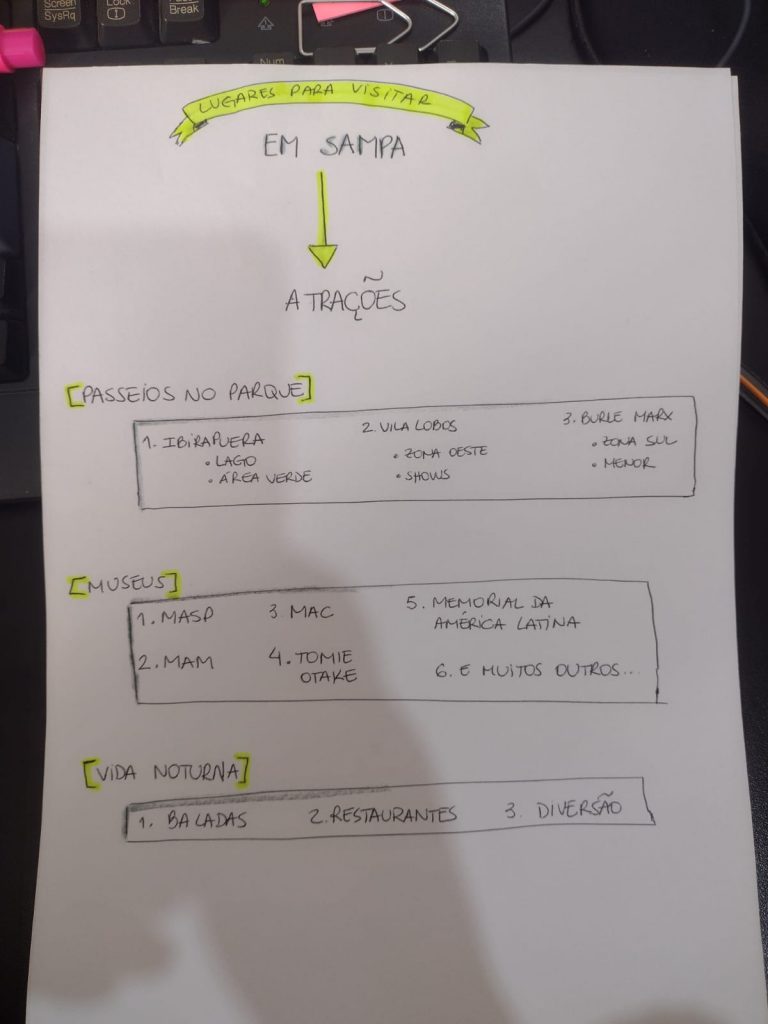 Screen
SysRq
Lock
Break
Num
LUGARES PARA VISITAR
EM SAMPA
ATRAÇÕES
[PASSEIOS NO PARQUE]
1. IBIRAPUERA
• LAGO
• ÁREA VERDE
2. VILA LOBOS
• ZONA OESTE
• SHOWS
3. BURLE MARX
• ZONA SUL
• MENOR
[MUSEUS]
1. MASP
2. MAM
3. MAC
4. TOMIE
OTAKE
5. MEMORIAL DA
AMÉRICA LATINA
6. E MUITOS OUTROS...
[VIDA NOTURNA]
1. BALADAS
2. RESTAURANTES
3. DIVERSÃO